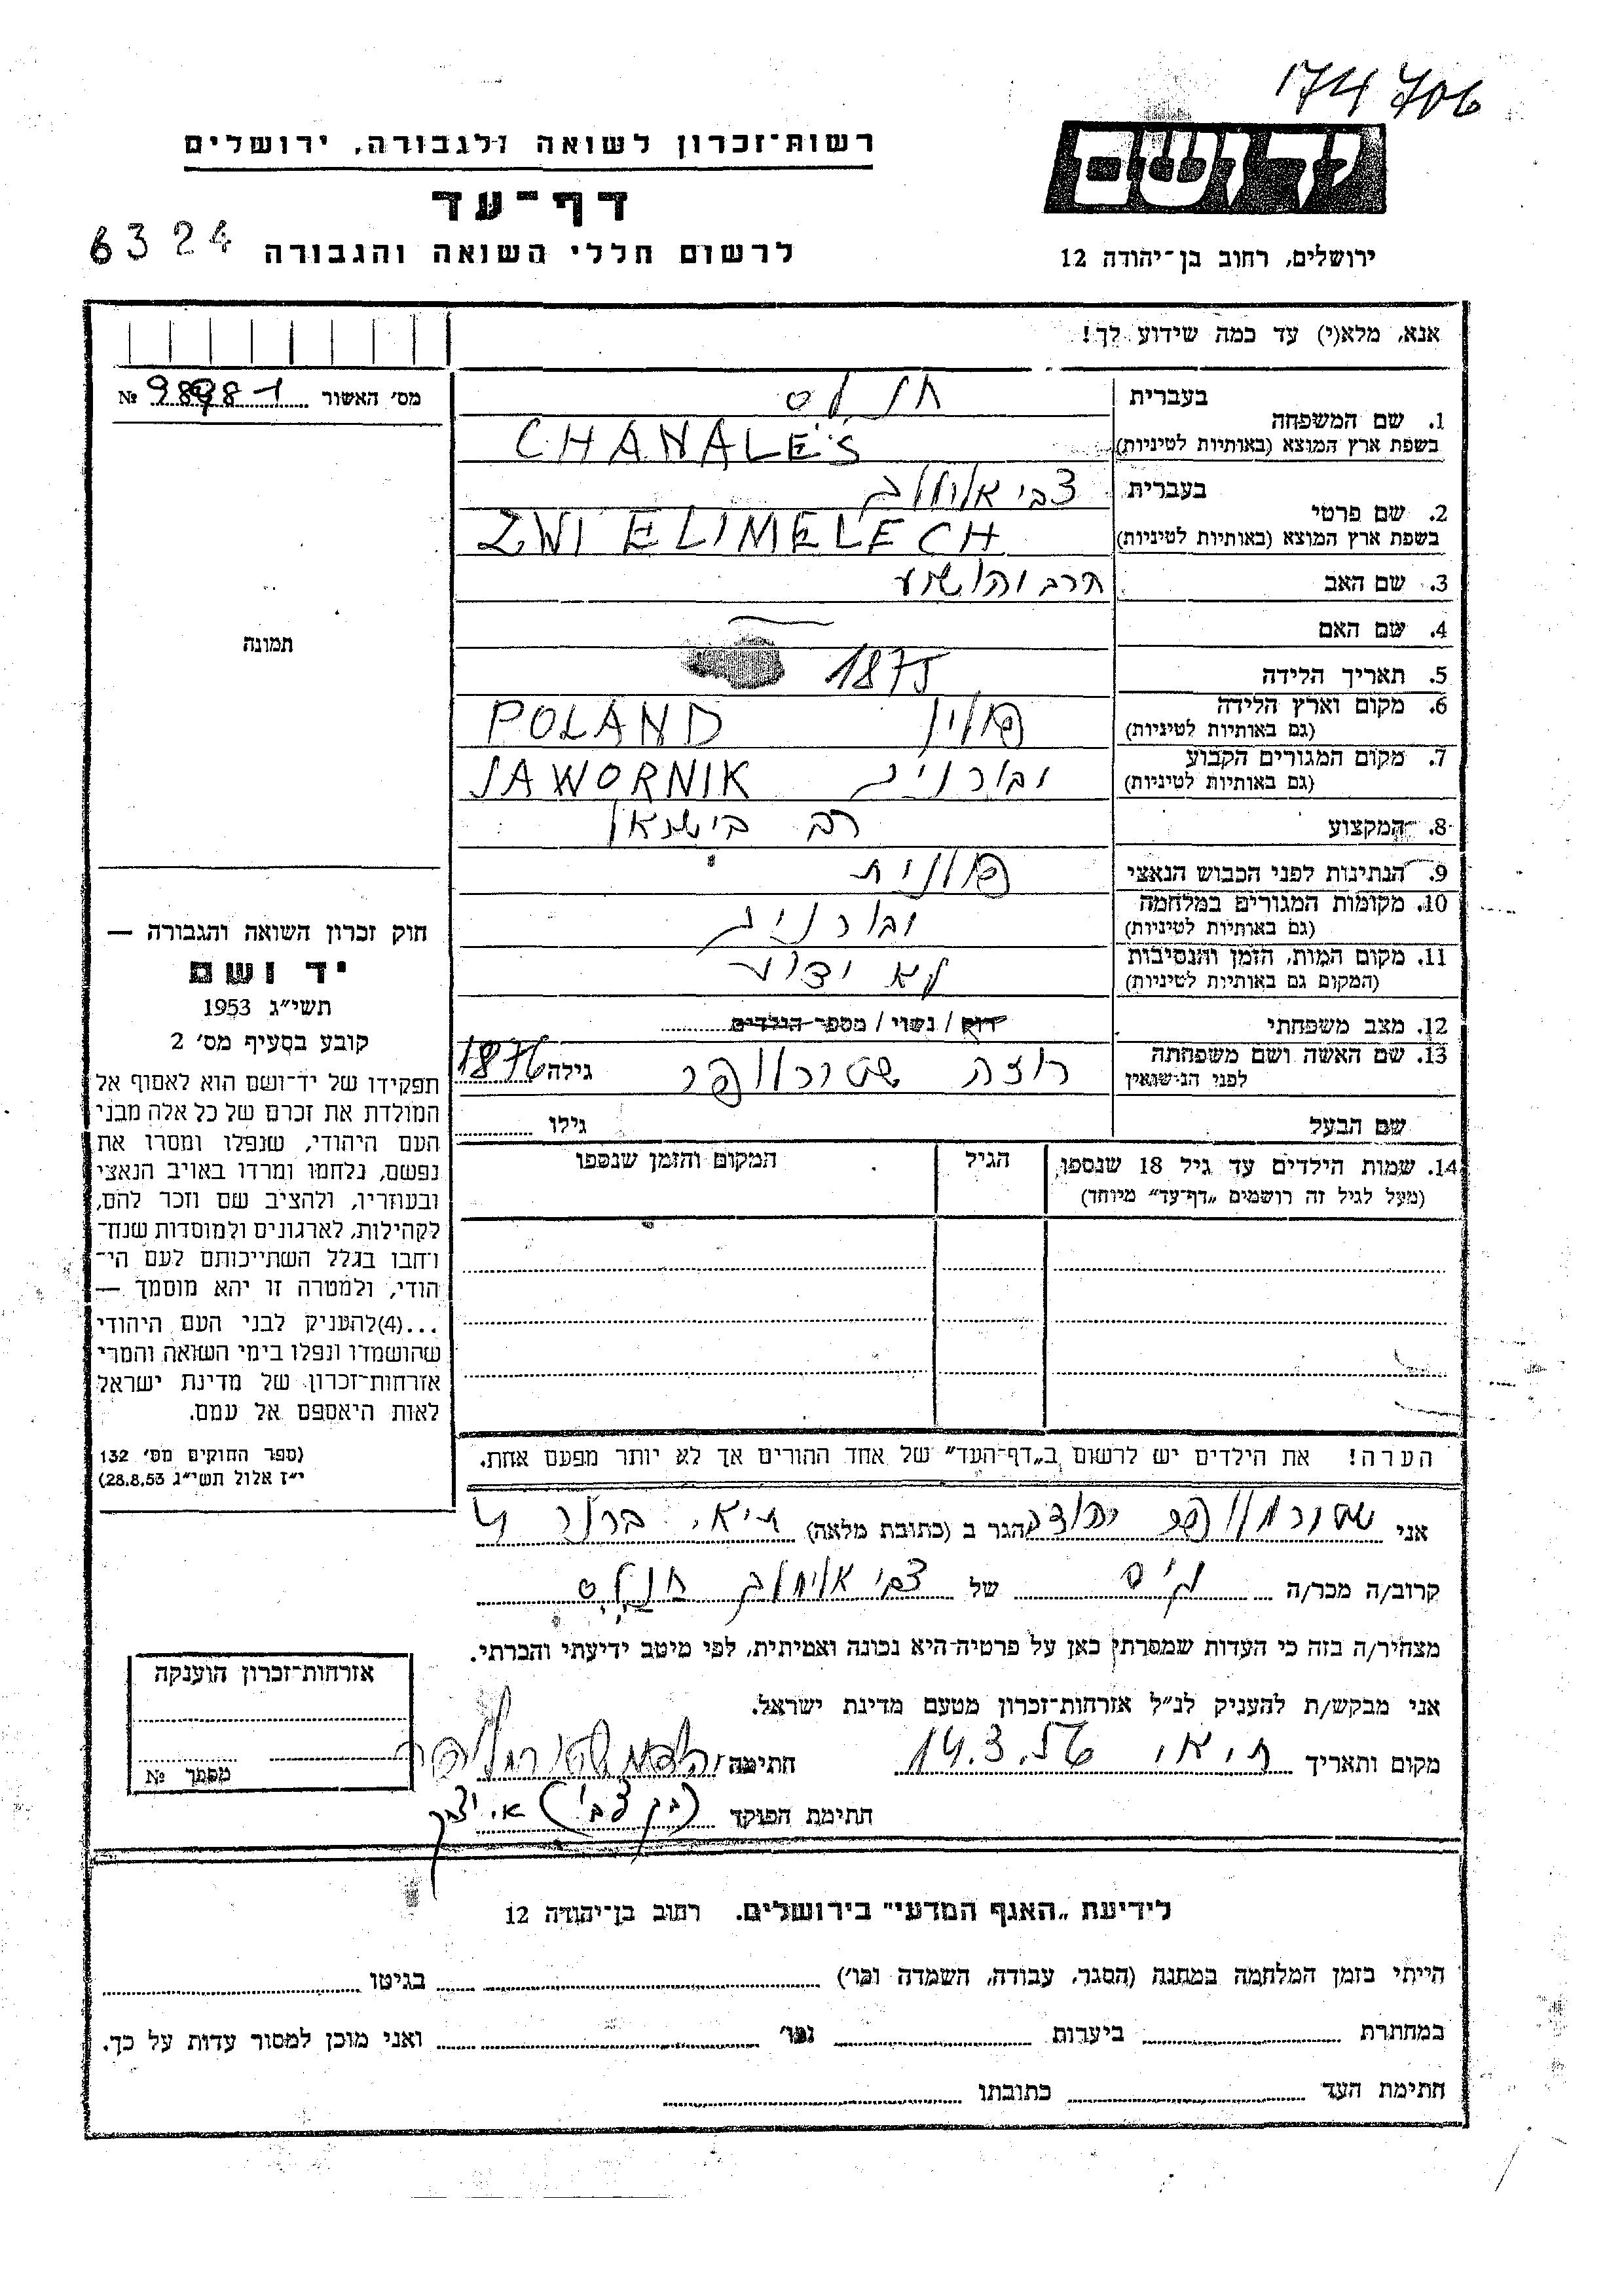 174706
יד ושם
רשות־זכרון לשואה ולגבורה, ירושלים
דף־עד
לרשום חללי השואה והגבורה
6324
ירושלים, רחוב בן־יהודה 12
אנא, מלא(י) עד כמה שידוע לך!
מס׳ האשור № 
1. שם המשפחה
בעברית
חנלס
בשפת ארץ המוצא (באותיות לטיניות)
CHANALES
2. שם פרטי
בעברית
צבי אלימלך
בשפת ארץ המוצא (באותיות לטיניות)
ZWI ELIMELECH
3. שם האב
הרב יהושע
4. שם האם
5. תאריך הלידה
1875
6. מקום וארץ הלידה
(גם באותיות לטיניות)
פולין POLAND
7. מקום המגורים הקבוע
(גם באותיות לטיניות)
יבורניק JAWORNIK
8. המקצוע
רב
9. הנתינות לפני הכבוש הנאצי
פולנית
10. מקומות המגורים במלחמה
(גם באותיות לטיניות)
יבורניק
11. מקום המות, הזמן והנסיבות
(המקום גם באותיות לטיניות)
לא ידוע
12. מצב משפחתי
רוק / נשוי / מספר הילדים
13. שם האשה ושם משפחתה
לפני הנישואין
רוזה גילה 1876
שם הבעל גילו
14. שמות הילדים עד גיל 18 שנספו
(מעל לגיל זה רושמים „דף־עד״ מיוחד)
הגיל
המקום והזמן שנספו
הערה! את הילדים יש לרשום ב„דף־העד״ של אחד ההורים אך לא יותר מפעם אחת.
תמונה
חוק זכרון השואה והגבורה —
יד ושם
תשי״ג 1953
קובע בסעיף מס׳ 2
תפקידו של יד־ושם הוא לאסוף אל
המולדת את זכרם של כל אלה מבני
העם היהודי, שנפלו ומסרו את
נפשם, נלחמו ומרדו באויב הנאצי
ובעוזריו, ולהציב שם וזכר להם,
לקהילות, לארגונים ולמוסדות שנח־
רבו בגלל השתייכותם לעם הי־
הודי, ולמטרה זו יהא מוסמך —
...(4)להעניק לבני העם היהודי
שהושמדו ונפלו בימי השואה והמרי
אזרחות־זכרון של מדינת ישראל
לאות היאספם אל עמם.
(ספר החוקים מס׳ 132
י״ז אלול תשי״ג 28.8.53)
אני יהודה הגר ב (כתובת מלאה)
קרוב/ה מכר/ה גיס של צבי אלימלך חנלס
מצהיר/ה בזה כי העדות שמסרתי כאן על פרטיה היא נכונה ואמיתית, לפי מיטב ידיעתי והכרתי.
אני מבקש/ת להעניק לנ״ל אזרחות־זכרון מטעם מדינת ישראל.
מקום ותאריך 14.3.56 חתימה
חתימת הפוקד (בן צבי)
אזרחות־זכרון הוענקה
מסמך №
לידיעת „האגף המדעי״ בירושלים. רחוב בן־יהודה 12
הייתי בזמן המלחמה במחנה (הסגר, עבודה, השמדה וכו׳) בגיטו
במחתרת ביערות וכו׳ ואני מוכן למסור עדות על כך.
חתימת העד כתובתו